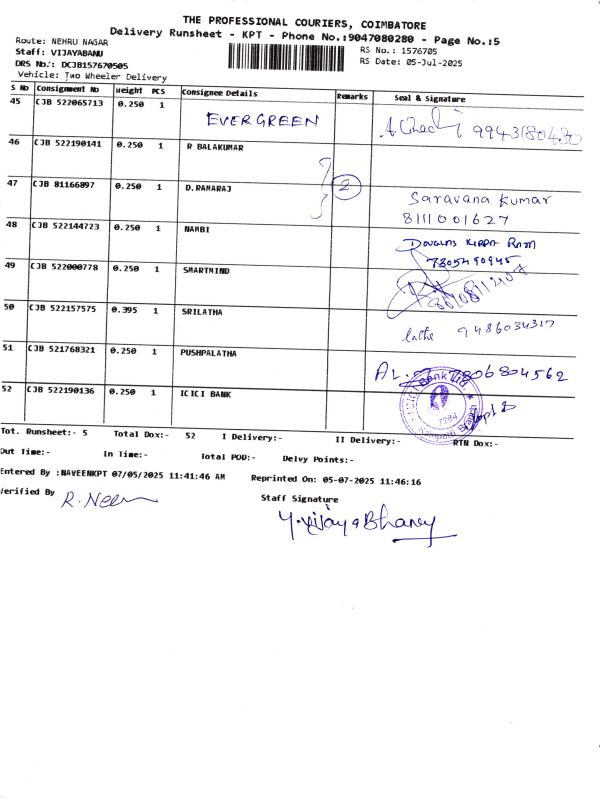 THE PROFESSIONAL COURIERS, COIMBATORE
Delivery Runsheet - KPT - Phone No.:9047080280 - Page No.:5
Route: NEHRU NAGAR
RS No.: 1576705
Staff: VIJAYABANU
RS Date: 05-Jul-2025
DRS No.: DCJB157670505
Vehicle: Two Wheeler Delivery
S No Consignment No Weight PCS Consignee Details Remarks Seal & Signature
45 CJB 522065713 0.250 1 EVERGREEN 9943180430
46 CJB 522190141 0.250 1 R BALAKUMAR
47 CJB 81166897 0.250 1 D.RAMARAJ 2 Saravana Kumar
8111001627
48 CJB 522144723 0.250 1 NAMBI DOUGLAS
7305490945
49 CJB 522000778 0.250 1 SMARTMIND
50 CJB 522157575 0.395 1 SRILATHA latha 9486034317
51 CJB 521768321 0.250 1 PUSHPALATHA 7806804562
52 CJB 522190136 0.250 1 ICICI BANK
Bank Ltd.
7204
Branch
Tot. Runsheet:- 5 Total Dox:- 52 I Delivery:- II Delivery:- RTN Dox:-
Out Time:- In Time:- Total POD:- Delvy Points:-
Entered By :NAVEENKPT 07/05/2025 11:41:46 AM Reprinted On: 05-07-2025 11:46:16
Verified By Staff Signature
R. Neen
Y. Vijaya Bhaney